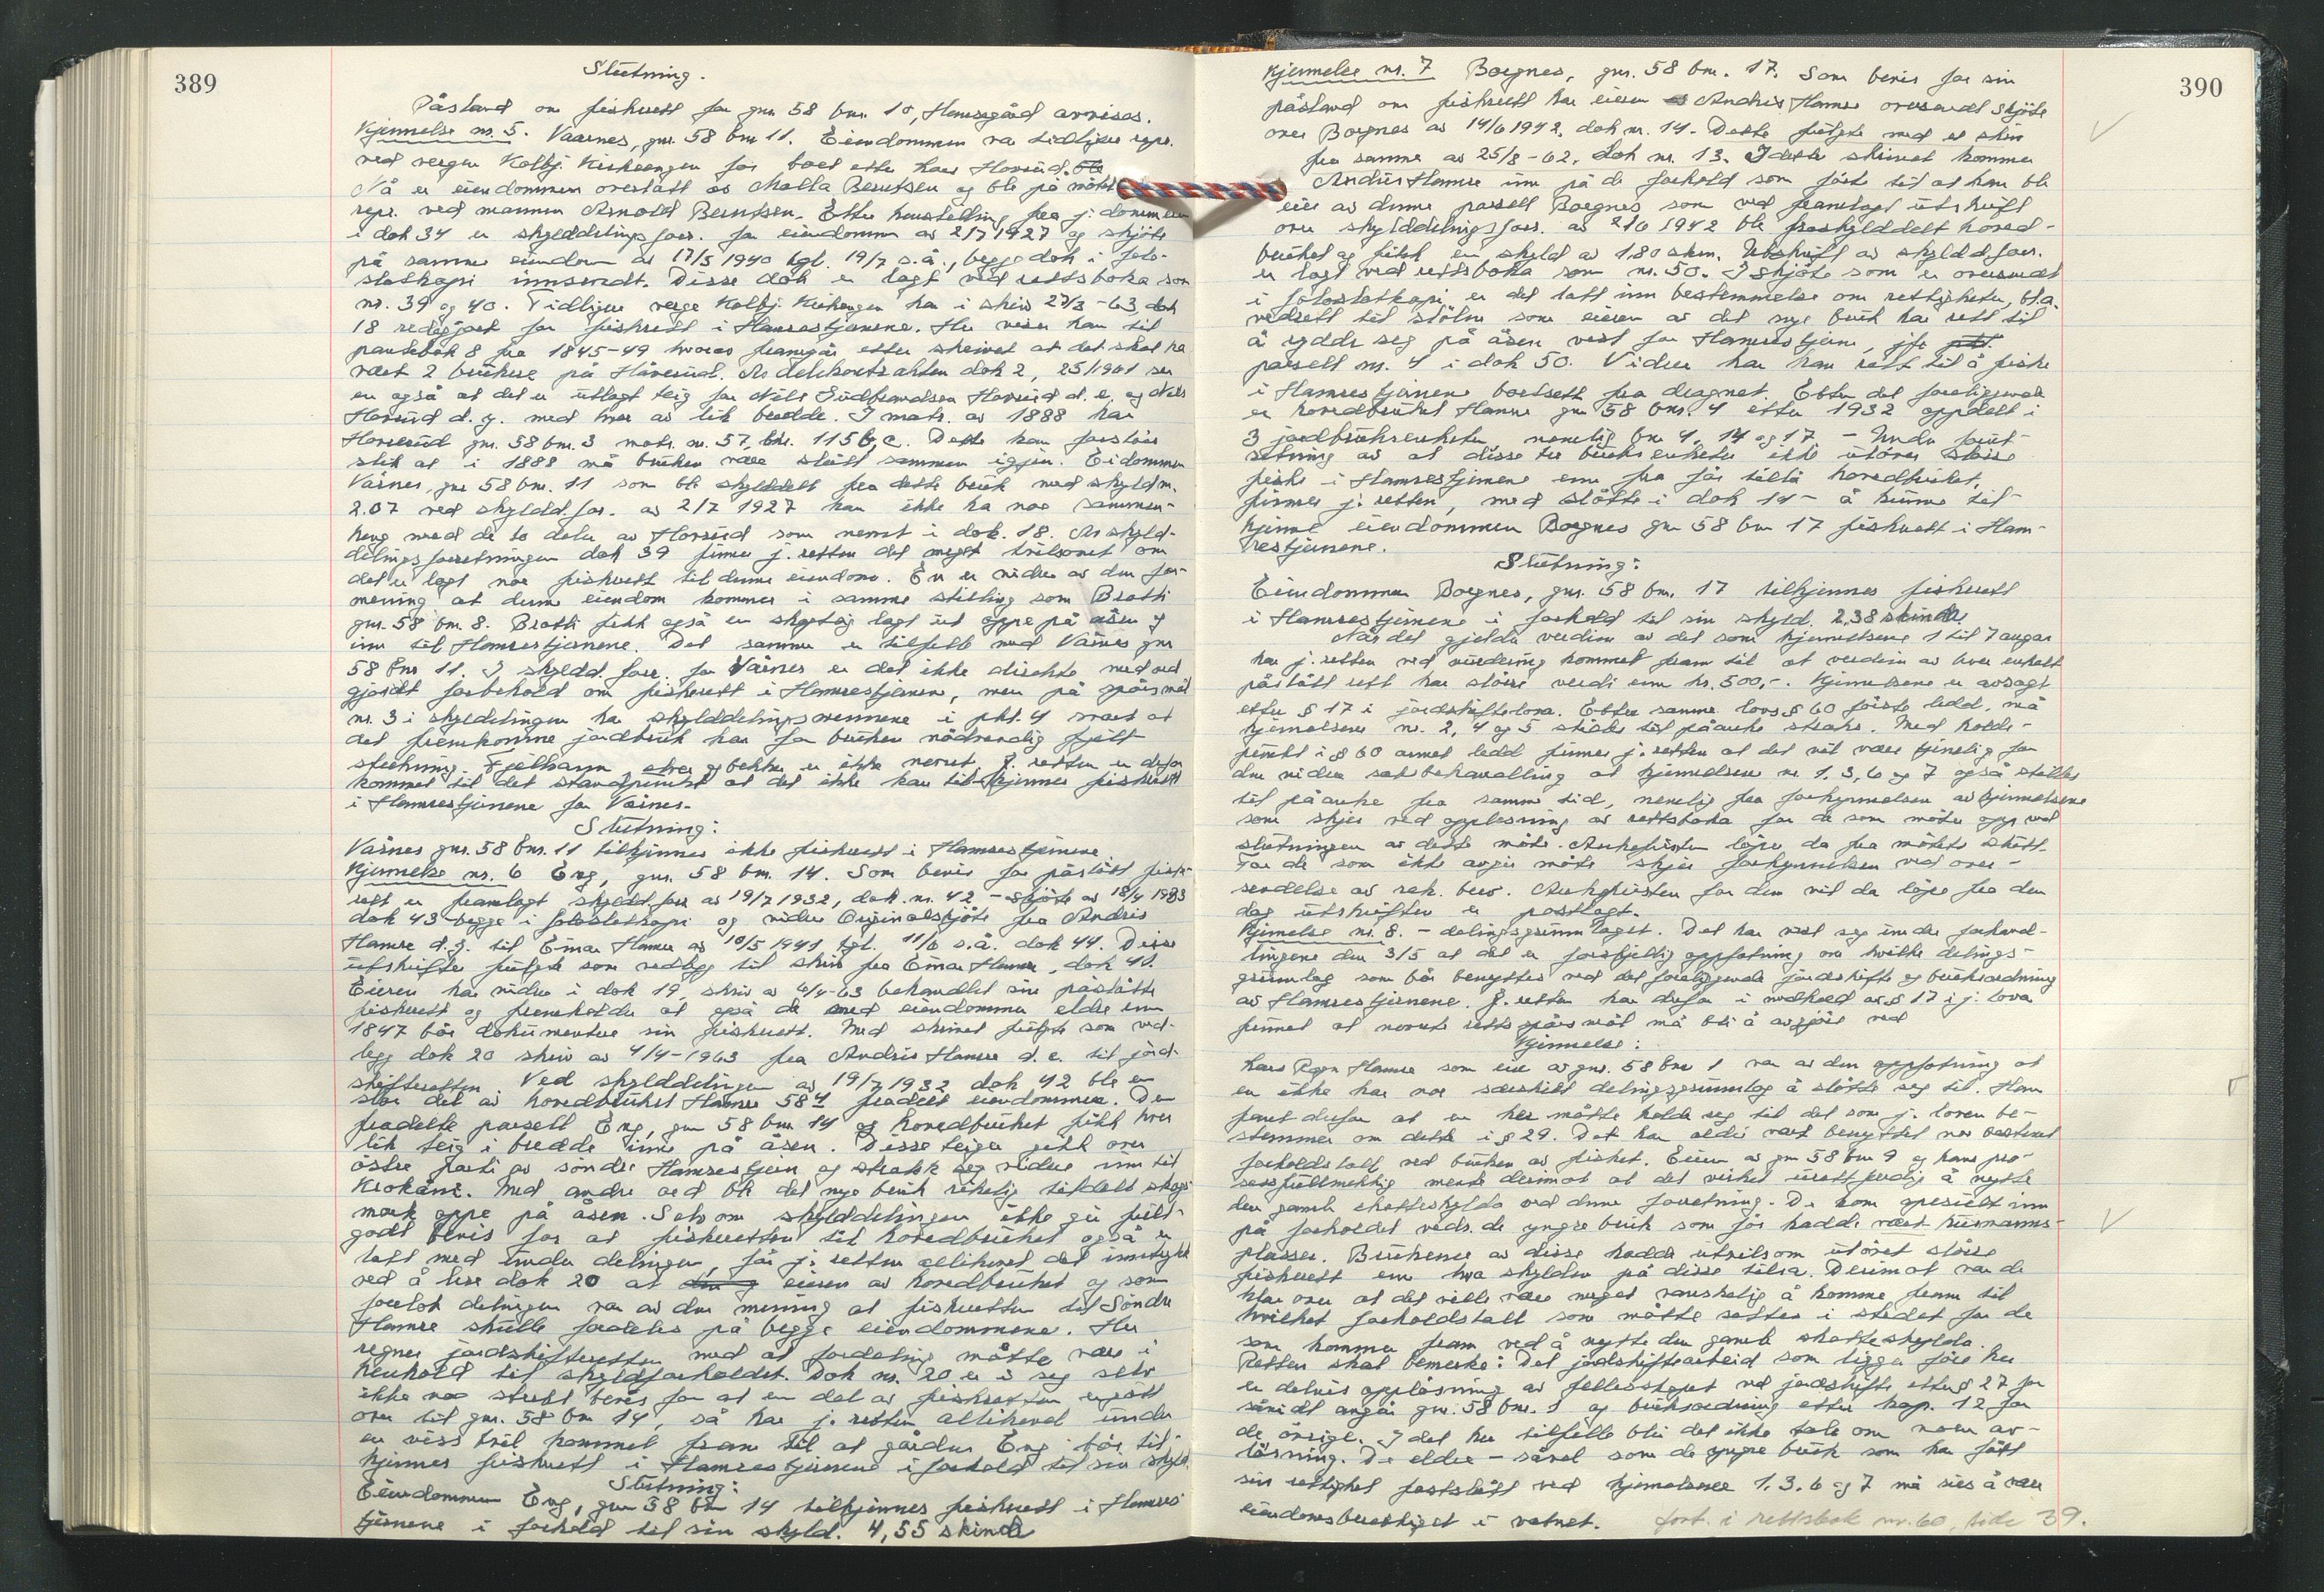 389
Slutning.
Påstand om fiskerett for gnr. 58 bnr. 10, Hamsegård avvises.
Kjennelse nr. 5. Vaarnes, gnr. 58 bnr 11. Eiendommen var tidligere repr.
ved vergen Kolbj. Kirkeengen for boet etter Hans Horsrud.
Nå er eiendommen overtatt av Malla Berntsen og ble på møtet
repr. ved mannen Arnold Berntsen. Etter henstilling fra j. dommeren
i dok 34 er skylddelings forr. for eiendommen av 2/7 1927 og skjöte
på samme eiendom av 17/5 1940 tgl. 19/7 s.å., begge dok i foto-
statkopi innsendt. Disse dok er lagt ved rettsboka som
nr. 39 og 40. Tidligere verge Kolbj. Kirkeengen har i skriv 27/3-63 dok
18 redegjort for fiskerett i Hamsestjernene. Her viser han til
pantebok 8 fra 1845-49 hvorav framgår etter skrivet at det skal ha
vært 2 brukere på Horsrud. Av delekontrakten dok 2, 25/1901 ser
en også at det er utlagt teig for Nils Gudbrandsen Horsrud d.e. og Nils
Horsrud d.y. med hver av lik bredde. I matr. av 1888 har
Horsrud gnr. 58 bnr. 3 matr. nr. 57, lnr. 115 b, c. Dette kan forståes
slik at i 1888 må bruken være slått sammen igjen. Eidommen
Vårnes, gnr 58 bnr. 11 som ble skylddelt fra dette bruk med skyldm.
2.07 ved skyldd.for. av 2/7 1927 kan ikke ha noe sammen-
heng med de to deler av Horsrud som nevnt i dok. 18. Av skyld-
delings forretningen dok 39 finner j. retten det meget tvilsomt om
det er lagt noe fiskerett til denne eiendom. En er videre av den for-
mening at denne eiendom kommer i samme stilling som Bratli
gnr. 58 bnr. 8. Bratli fikk også en skogteig lagt ut oppe på åsen og
inn til Hamsestjernene. Det samme er tilfelle med Vårnes gnr
58 bnr 11. I skyldd. forr. for Vårnes er det ikke direkte ned ved
gjordt forbehold om fiskerett i Hamsestjernene, men på spørsmål
nr. 3 i skylddelingen har skylddelingsmennene i pkt. 4 svart at
det fremkomne jordbruk har for bruken nödvendig fjell-
strekning. Fjellvann elver og bekker er ikke nevnt. J. retten er derfor
kommet til det standpunkt at det ikke kan tilkjennes fiskerett
i Hamsestjernene for Vårnes.
Slutning:
Vårnes gnr. 58 bnr. 11 tilkjennes ikke fiskerett i Hamsestjernene
Kjennelse nr. 6 Eng, gnr. 58 bnr. 14. Som bevis for påstått fiske-
rett er framlagt skyldd.forr av 19/7 1932, dok. nr. 42 - skjöte av 18/4 1933
dok 43 begge i fotostatkopi og videre Originalskjöte fra Andris
Hamse d.y. til Einar Hamse av 10/5 1941 tgl. 11/6 s.å. dok 44. Disse
utskrifter fulgte som vedlegg til skriv fra Einar Hamse, dok 41.
Eieren har videre i dok 19, skriv av 4/4-63 behandlet sin påståtte
fiskerett og fremholder at også de med eiendommer eldre enn
1847 bör dokumentere sin fiskerett. Med skrivet fulgte som ved-
legg dok 20 skriv av 4/4-1963 fra Andris Hamse d.e. til jord-
skifteretten. Ved skylddelingen av 19/7 1932 dok 42 ble en
stor del av hovedbruket Hamse 58/4 fradelt eiendommen. Den
fradelte parsell Eng, gnr 58 bnr 14 og hovedbruket fikk hver
lik teig i bredde inne på åsen. Disse teiger gikk over
östre parti av söndre Hamsestjern og strakk seg videre inn til
Krokåni. Med andre ord ble det nye bruk rikelig tildelt skog-
mark oppe på åsen. Selv om skylddelingen ikke gir full-
godt bevis for at fiskeretten til hovedbruket også er
tatt med under delingen, får j. retten allikevel det inntrykk
ved å lese dok 20 at eieren av hovedbruket og som
foretok delingen var av den mening at fiskeretten til Söndre
Hamse skulle fordeles på begge eiendommene. Her
regner jordskifteretten med at fordeling måtte være i
henhold til skyldforholdet. Dok nr. 20 er i seg selv
ikke noe strikt bevis for at en del av fiskeretten er gått
over til gnr. 58 bnr 14, så har j. retten allikevel under
en viss tvil kommet fram til at gården Eng bör til-
kjennes fiskerett i Hamsestjernene i forhold til sin skyld.
Slutning:
Eiendommen Eng, gnr 58 bnr 14 tilkjennes fiskerett i Hamses
tjernene i forhold til sin skyld. 4,55 skinde
390
Kjennelse nr. 7 Borgnes, gnr. 58 bnr. 17. Som bevis for sin
påstand om fiskerett har eieren Andris Hamse oversendt skjöte
over Borgnes av 14/6 1942, dok nr. 14. Dette fulgte med et skriv
fra samme av 25/3-62, dok nr. 13. I dette skrivet kommer
Andris Hamse inn på de forhold som förte til at han ble
eier av denne parsell Borgnes som ved framlagt utskrift
over skylddelings forr. av 2/6 1942 ble fraskylddelt hoved-
bruket og fikk en skyld av 1.80 skm. Utskrift av skyldd.forr.
er lagt ved rettsboka som nr. 50. I skjöte som er oversendt
i fotostatkopi er det tatt inn bestemmelse om rettigheter, bl.a.
vedrett til stölen som eieren av det nye bruk har rett til
å rydde seg på åsen vest for Hamsestjern, jfr
parsell nr. 4 i dok 50. Videre har han rett til å fiske
i Hamsestjernene bortsett fra dragnet. Etter det foreliggende
er hovedbruket Hamse gnr 58 bnr. 4 etter 1932 oppdelt i
3 jordbruksenheter, nemlig bnr 4, 14 og 17. - Under forut-
setning av at disse tre bruksenheter ikke utöver större
fiske i Hamsestjernene enn fra för tillå hovedbruket,
finner j. retten, med stötte i dok 14 - å kunne til-
kjenne eiendommen Borgnes gnr 58 bnr 17 fiskerett i Ham-
sestjernene.
Slutning:
Eiendommen Borgnes, gnr. 58 bnr. 17 tilkjennes fiskerett
i Hamsestjernene i forhold til sin skyld. 2,38 skinde
Når det gjelder verdien av det som kjennelsene 1 til 7 angår
har j. retten ved vurdering kommet fram til at verdien av hver enkelt
påstått rett har större verdi enn kr. 500,-. Kjennelsene er avsagt
etter § 17 i jordskifteloven. Etter samme lovs § 60 förste ledd, må
kjennelsene nr. 2, 4 og 5 stilles til påanke straks. Med holde-
punkt i § 60 annet ledd finner j. retten at det vil være tjenelig for
den videre saksbehandling at kjennelsene nr. 1, 3, 6 og 7 også stilles
til påanke fra samme tid, nemlig fra forkynnelsen av kjennelsene
som skjer ved opplesning av rettsboka for de som möter opp ved
slutningen av dette möte. Ankefristen löper da fra mötets slutt.
For de som ikke avgir möte skjer forkynnelsen ved over-
sendelse av rek. brev. Ankefristen for dem vil da löpe fra den
dag utskriften er postlagt.
Kjennelse nr. 8. - delingsgrunnlaget. Det har vist seg under forhand-
lingene den 3/5 at det er forskjellig oppfatning om hvilke delings-
grunnlag som bör benyttes ved det foreliggende jordskifte og bruksordning
av Hamsestjernene. J. retten har derfor i medhold av § 17 i j. lova
funnet at nevnte rettsspörsmål må bli å avgjöre ved
Kjennelse:
Hans Egon Hamse som eier av gnr. 58 bnr 1 var av den oppfatning at
en ikke har noe særskilt delingsgrunnlag å stötte seg til. Han
fant derfor at en her måtte holde seg til det som j. loven be-
stemmer om dette i § 29. Det har aldri vært benyttet noe bestemt
forholdstall ved bruken av fisket. Eieren av gnr 58 bnr 9 og hans pro-
sessfullmektig mente derimot at det virket urettferdig å nytte
den gamle skatteskylda ved denne forretning. De kom spesielt inn
på forholdet veds. de yngre bruk som för hadde vært husmanns-
plasser. Brukerne av disse hadde utvilsom utövet större
fiskerett enn hva skylden på disse tilsa. Derimot var de
klar over at det ville være meget vanskelig å komme fram til
hvilket forholdstall som måtte settes i stedet for de
som kommer fram ved å nytte den gamle skatteskylda.
Retten skal bemerke: Det jordskiftearbeid som ligger före her
er delvis opplösning av fellesskapet ved jordskifte etter § 27 for
såvidt angår gnr. 58 bnr. 1 og bruksordning etter kap. 12 for
de övrige. I det her tilfelle blir det ikke tale om noen av-
lösning. De eldre - såvel som de yngre bruk som har fått
sin rettighet fastslått ved kjennelsene 1, 3, 6 og 7 må sies å være
eiendomsberettiget i vatnet. fort. i rettsbok nr. 60, side 39.